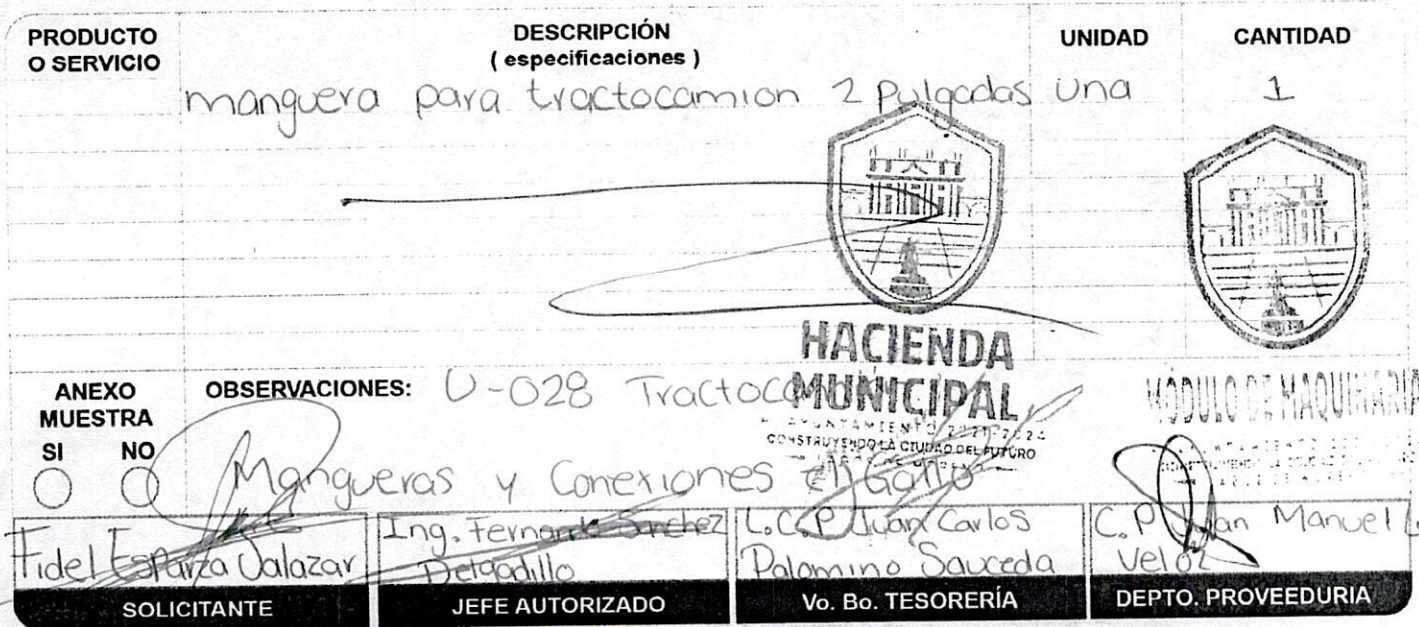 PRODUCTO O SERVICIO
DESCRIPCIÓN
( especificaciones )
UNIDAD
CANTIDAD
manguera para tractocamion 2 pulgadas una 1
HACIENDA
MUNICIPAL
CONSTRUYENDO LA CIUDAD DEL FUTURO
MÓDULO DE MAQUINARIA
ANEXO MUESTRA
SI NO
OBSERVACIONES: U-028
Mangueras y Conexiones
Fidel Esparza Salazar
SOLICITANTE
Ing. Fernando Sanchez
Delgadillo
JEFE AUTORIZADO
L.C.P Juan Carlos
Palomino Sauceda
Vo. Bo. TESORERÍA
C.P Juan Manuel
Veloz
DEPTO. PROVEEDURIA